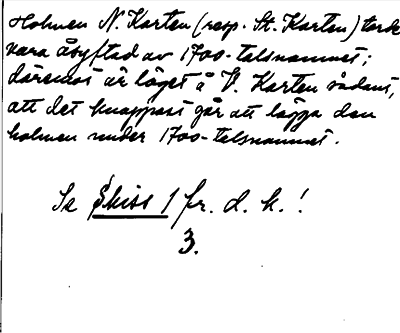 Holmen N. Karten (resp. St. Karten) torde
vara åsyftad av 1700-talsnamnet;
däremot är läget å V. Karten sådant,
att det knappast går att lägga den
holmen under 1700-talsnamnet.
Se Skiss 1 fr. d. h.!
3.